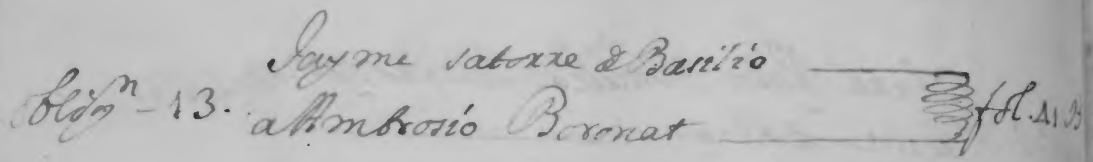 Jayme Satorre de Basilio
Obligᵒⁿ - 13. a Ambrosio Boronat fol. 41 B